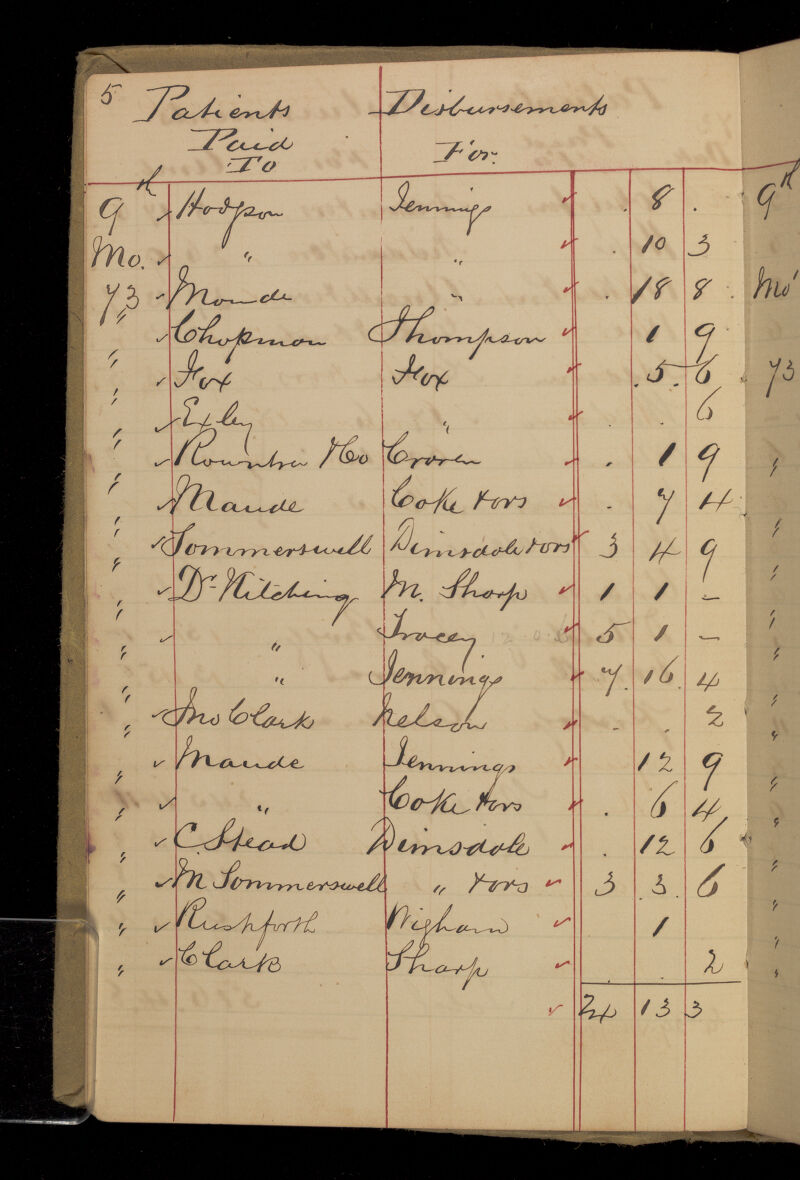 5 Patients Disbursements
Paid
To For.
9th Hodgson Jennings . 8 .
Mo. " " . 10 3
73 Maude " . 18 8
" Chapman Thompson 1 9
" Fox Fox . 5 . 6
" Exley " . . 6
" Rowntree & Co Craven . 1 9
" Maude Coke & ors . 7 4
" Sommerswell Dimsdale & ors 3 4 9
" Dr Kitching M. Sharp 1 1 –
" " Tracey 5 1 –
" " Jennings 7 . 16 . 4
" Jno Clark Nelson . . 2
" Maude Jennings 12 9
" " Coke & ors . 6 4
" C. Stead Dimsdale . 12 6
" M Sommerswell " & ors 3 . 3 . 6
" Rushforth Wigham 1
" Clark Sharp . . 2
24 13 3
9th
Mo
73